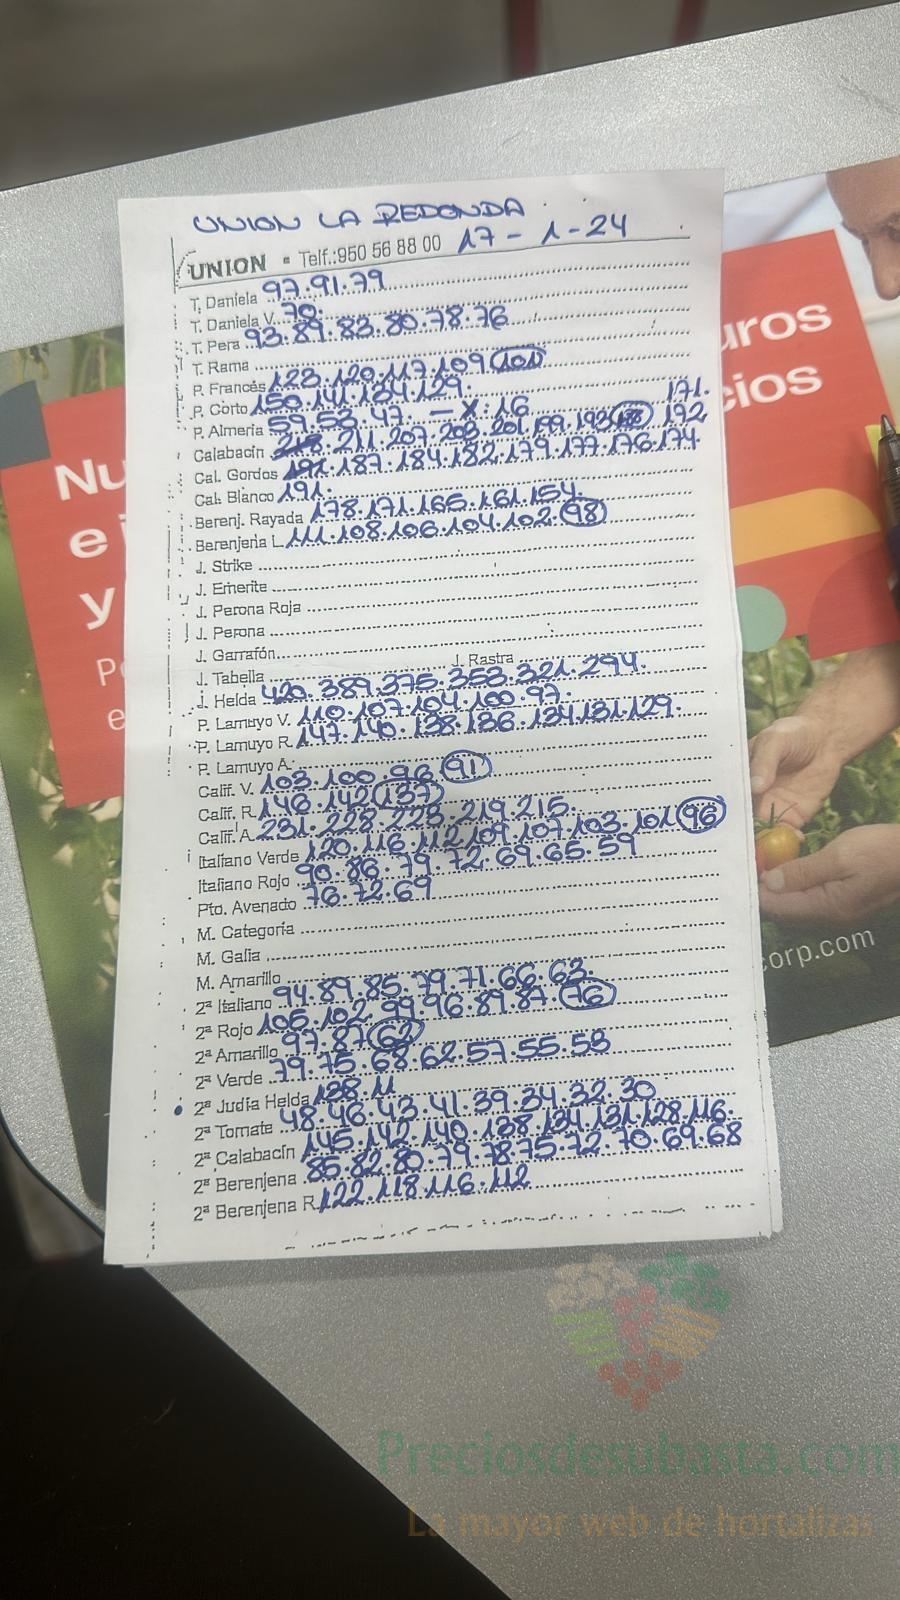 UNION LA REDONDA
UNION - Telf.:950 56 88 00 17-1-24
T. Daniela 97.91.79
T. Daniela V. 70.
T. Pera 93.89.83.80.78.76
T. Rama
P. Francés 123.120.117.109 101
P. Corto 150.141.134.129.
P. Almería 59.53.47. - X: 16 171.
Calabacín 211.207.203.201.199.193 192
Cal. Gordos 191.187.184.182.179.177.176.174
Cal. Blanco 191.
Berenj. Rayada 178.171.165.161.154.
Berenjena L. 111.108.106.104.102. 98
J. Strike
J. Emerite
J. Perona Roja
J. Perona
J. Garrafón
J. Tabella J. Rastra
J. Helda 420.389.375.353.321.294.
P. Lamuyo V. 110.107.104.100.97.
P. Lamuyo R. 147.140.138.136.134.131.129.
P. Lamuyo A.
Calif. V. 103.100.96. 91
Calif. R. 146.142 137
Calif. A. 231.228.223.219.215.
Italiano Verde 120.116.112.109.107.103.101 96
Italiano Rojo 90.86.79.72.69.65.59
Pto. Avenado 76.72.69
M. Categoría
M. Galia
M. Amarillo
2ª Italiano 94.89.85.79.71.66.63.
2ª Rojo 105.102.99.96.89.87. 76
2ª Amarillo 97.87 62
2ª Verde 79.75.68.62.57.55.53
2ª Judía Helda 138.11
2ª Tomate 48.46.43.41.39.34.32.30
2ª Calabacín 145.142.140.138.134.131.128.116.
2ª Berenjena 85.82.80.79.78.75.72.70.69.68
2ª Berenjena R. 122.118.116.112
Nu
e i
y
uros
cios
corp.com
Preciosdesubasta.com
La mayor web de hortalizas